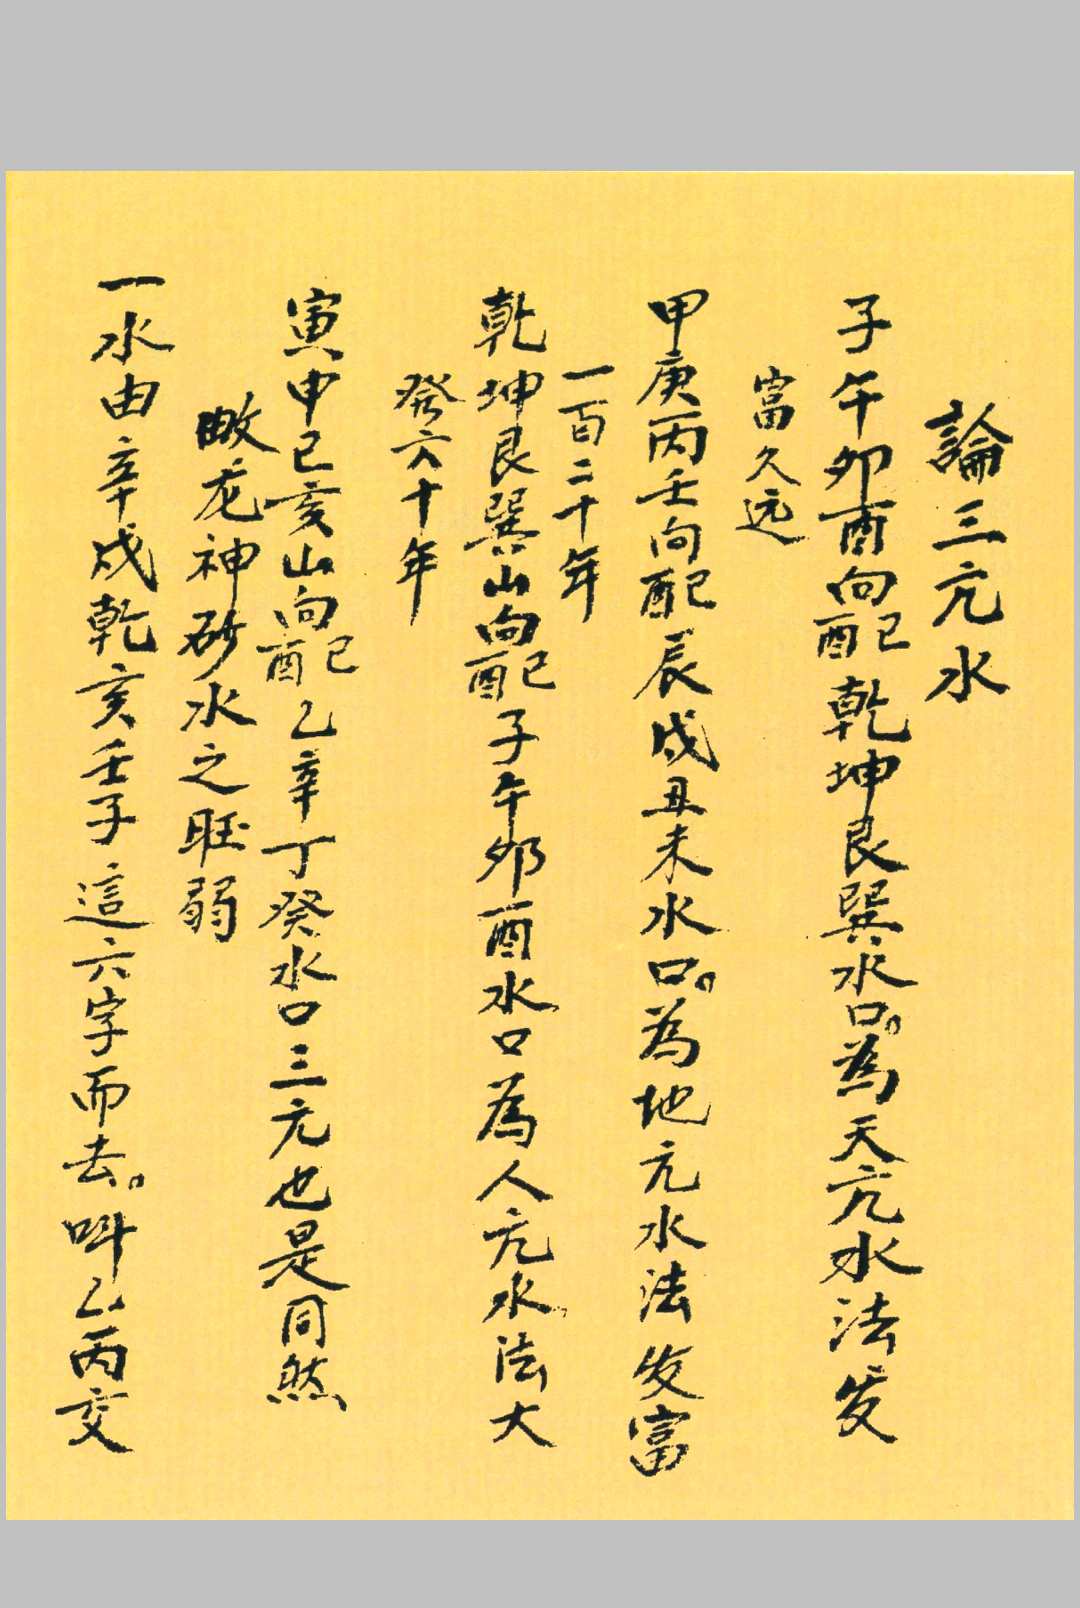 論三元水
子午卯酉向配乾坤艮巽水口。為天元水法发
富久远
甲庚丙壬向配辰戌丑未水口。為地元水法发富
一百二十年
乾坤艮巽山向配子午卯酉水口為人元水法大
癸六十年
寅申巳亥山向配乙辛丁癸水口三元也是同然
龙神砂水之旺弱
一水由辛戌乾亥壬子這六字而去。叫乙丙交